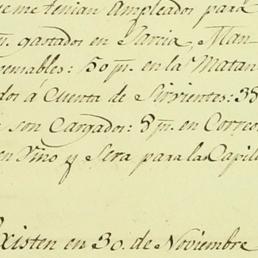 me tenian Ampleados para
gastados en Man
50 p.ˢ en la Matan
dos á Cuenta de Sirvientes: 38
son Cargados: 8 p.ˢ en Correo
en Vino y Sera para las Capill
Existen en 30. de Noviembre